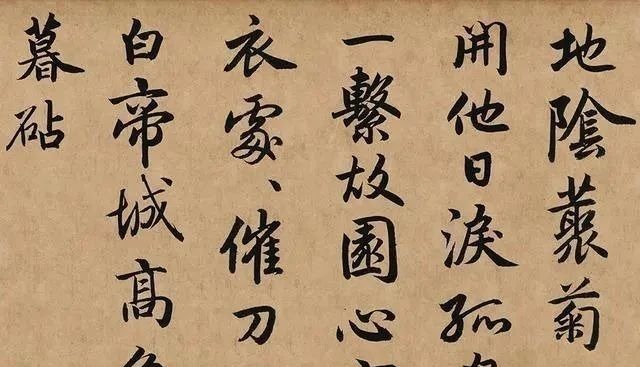 地陰藂菊
開他日淚孤
一繫故園心
衣處、催刀
白帝城高
暮砧